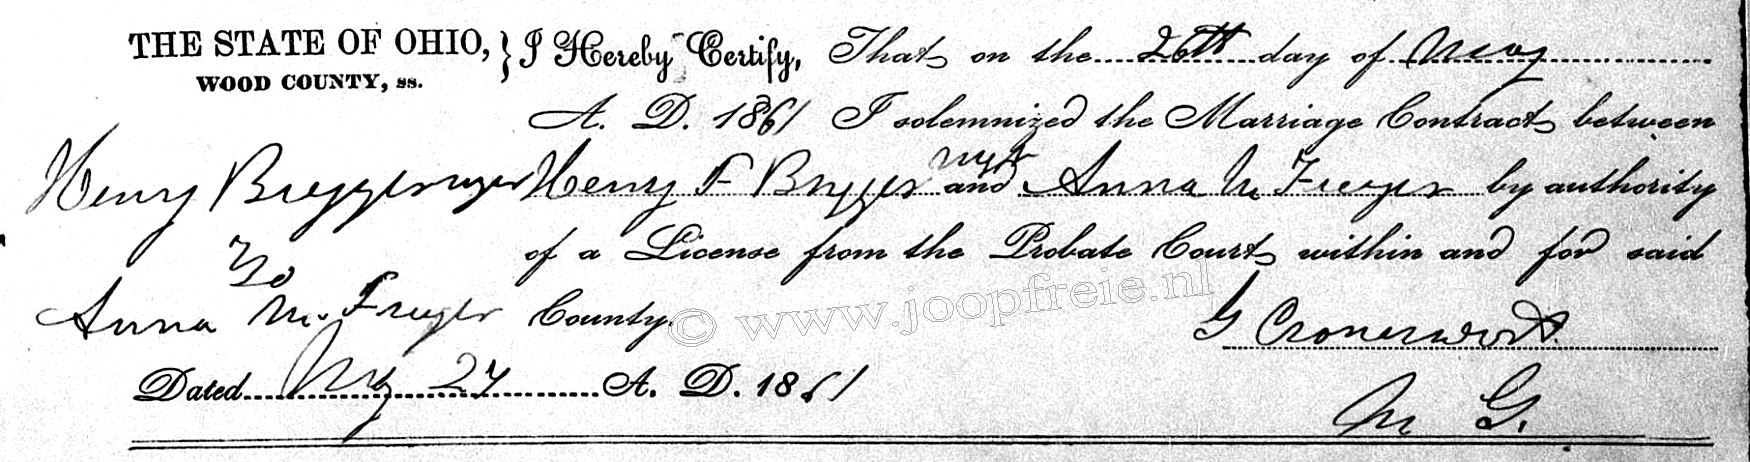 THE STATE OF OHIO, } I Hereby Certify, That on the 26th day of May
WOOD COUNTY, ss.
A. D. 1861 I solemnized the Marriage Contract between
Henry
Henry F and Anna M Freyer by authority
To
of a License from the Probate Court within and for said
Anna M. Freyer County.
© www.joopfreie.nl
G
Dated May 27 A. D. 1861
M G.